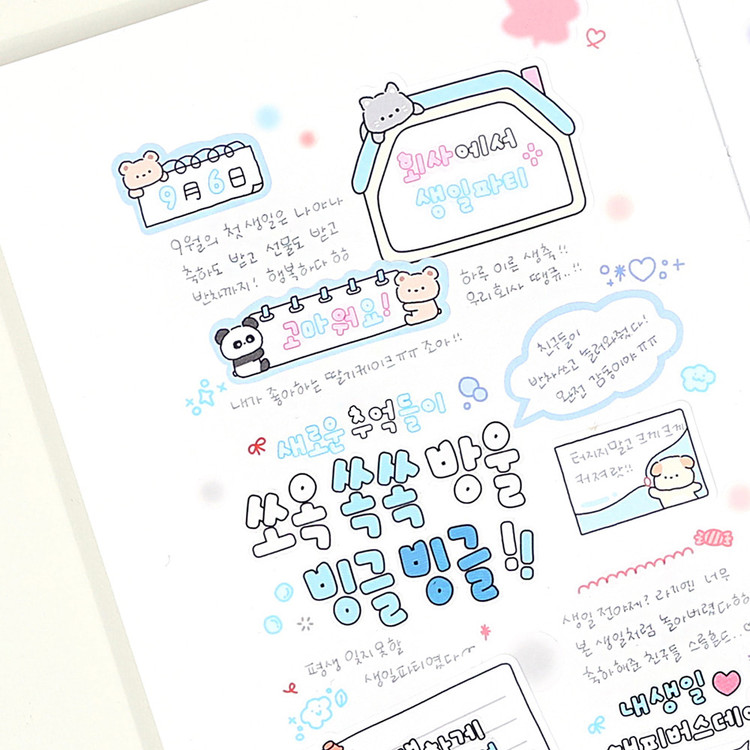 9월 6일
9월의 첫 생일은 나야나
축하도 받고 선물도 받고
반차까지! 행복하다 ㅎㅎ
회사에서
생일파티
하루 이른 생축!!
우리회사 땡큐..!!
고마워요!
내가 좋아하는 딸기케이크ㅠㅠ 조아!!
친구들이
반차쓰고 놀러와줬다!
완전 감동이야 ㅠㅠ
새로운 추억들이
쏘옥 쏙쏙 방울
빙글 빙글!!
터지지말고 크게크게
커져랏!!
평생 잊지못할
생일파티였다~
생일 전야제? 라기엔 너무
본 생일처럼 놀아버렸다ㅎㅎ
축하해준 친구들 스릉흔드
내생일
해피버스데이